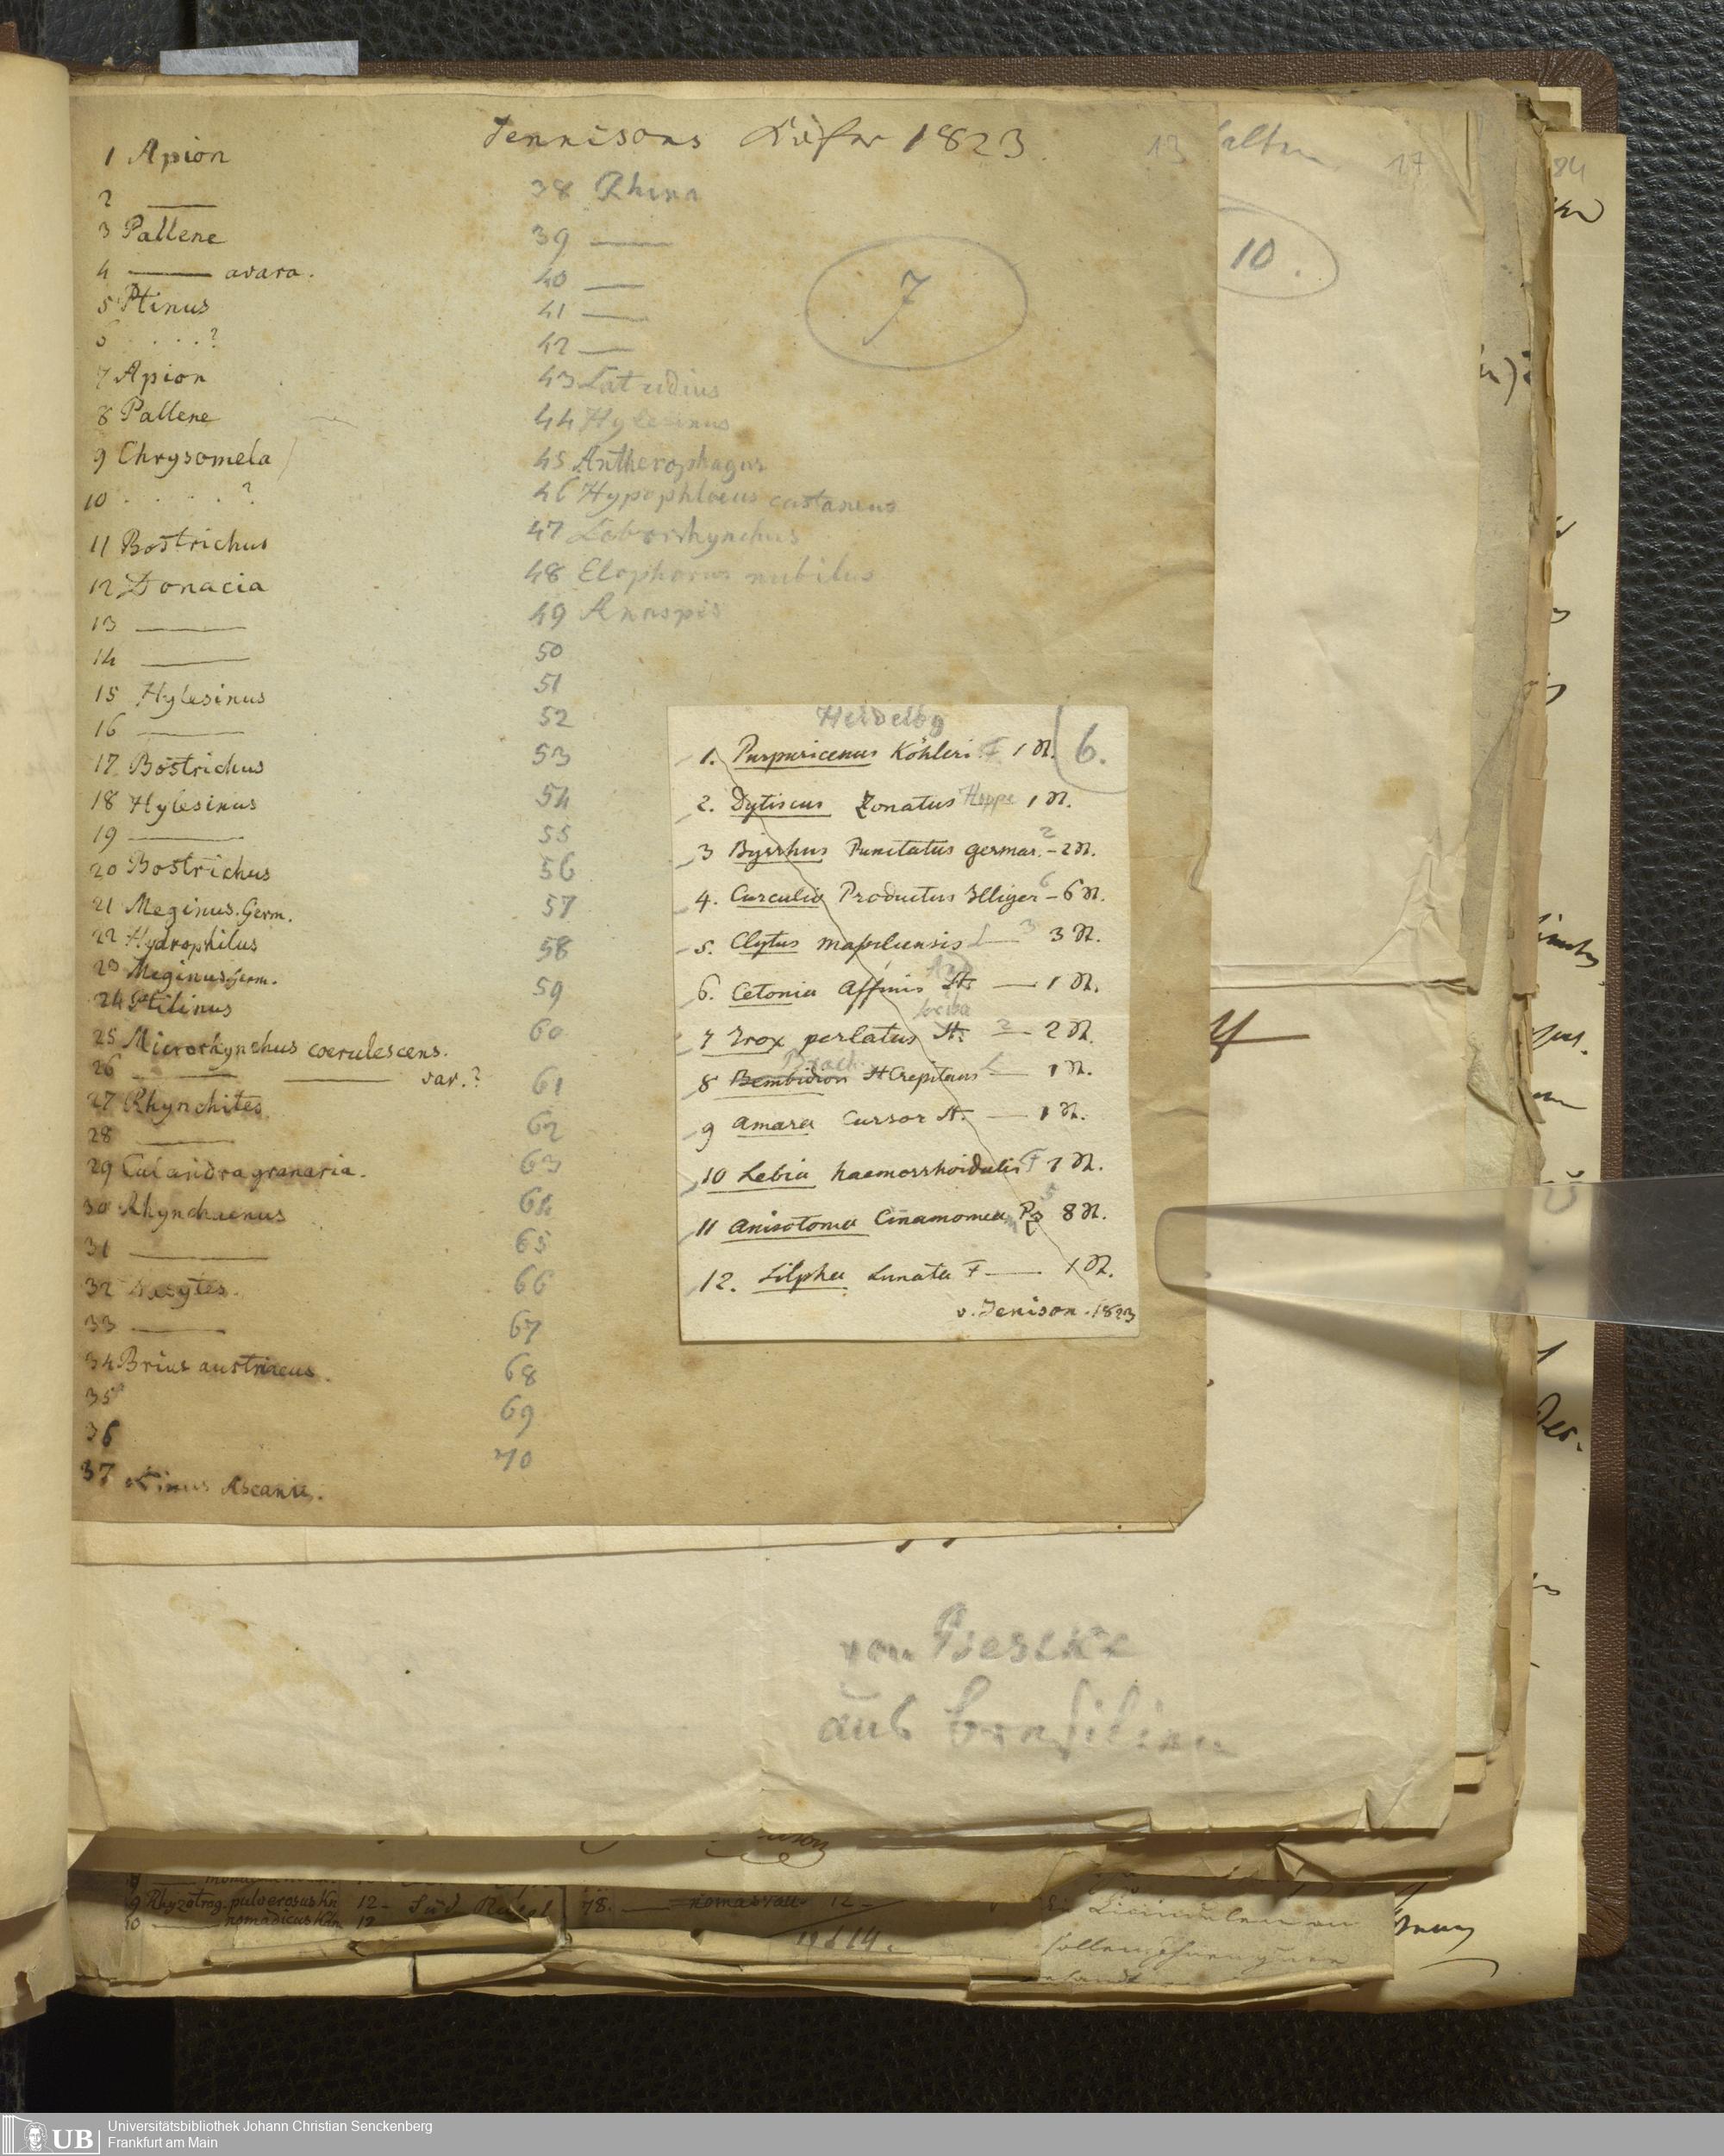 Jennisons Käfer 1823.
13
alten
17
84
1 Apion
2 ——
3 Pallene
4 —— avara.
5 Ptinus
6 . . . . ?
7 Apion
8 Pallene
9 Chrysomela
10 . . . . . ?
11 Bostrichus
12 Donacia
13 ——
14 ——
15 Hylesinus
16 ——
17 Bostrichus
18 Hylesinus
19 ——
20 Bostrichus
21 Meginus. Germ.
22 Hydrophilus
23 Meginus Germ.
24 Ptilinus
25 Microrhynchus coerulescens.
26 —— —— var.?
27 Rhynchites
28 ——
29 Calandra granaria.
30 Rhynchaenus
31 ——
32
33 ——
34 Brius austriacus.
35
36
37 Lixus Ascanii.
38 Rhina
39 ——
40 ——
41 ——
42 ——
43 Latridius
44 Hylesinus
45 Antherophagus
46 Hypophloeus castaneus
47 Loborhynchus
48 Elophorus nubilus
49 Anaspis
50
51
52
53
54
55
56
57
58
59
60
61
62
63
64
65
66
67
68
69
70
7
10.
Heidelbg
6.
1. Purpuricenus Köhleri F 1 N.
2. Dytiscus Zonatus Hoppe 1 N.
3 Byrrhus Punctatus germar. 2 – 2 N.
4. Curculio Productus Illiger 6 – 6 N.
5. Clytus L — 3 3 N.
6. Cetonia Affinis St. — 1 N.
7 Trox perlatus St. 2 – 2 N.
Brach.
8 Bembidion St Crepitans L — 1 N.
9 Amara Cursor St. — 1 N.
10 Lebia haemorrhoidalis F 1 N.
11 Anisotoma Cinamomea Pz 5 8 N.
12. Silpha Lunata F — 1 N.
v. Jenison. 1823
von Bescke
aus Brasilien
9 Rhyzotrog. pulverosus Kn 12 – Süd Russl
10 —— nomadicus Kn 12
78. —— 12 –
sollen
UB
Universitätsbibliothek Johann Christian Senckenberg
Frankfurt am Main